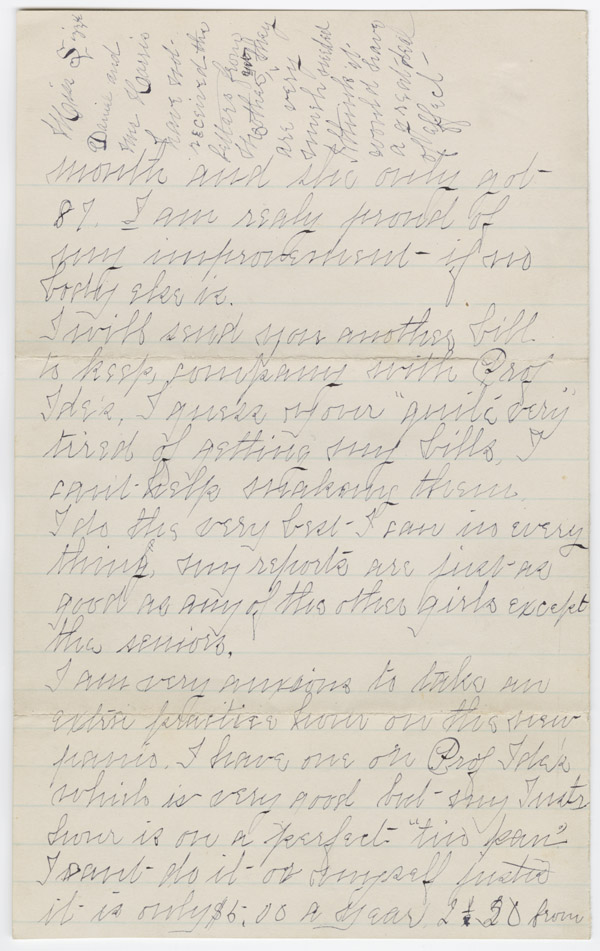 Miss
Daniel and
Mr Harris
have not
received the
letters from
the other they
are very
much
I think it
would have
a great deal
of effect -
month and she only got
87. I am realy proud of
my improvement - if no
body else is.
I will send you another bill
to keep company with Prof
Ide's. I guess your "quite very"
tired of getting my bills, I
cant help making them.
I do the very best I can in every
thing, my reports are just as
good as any of the other girls except
the seniors.
I am very anxious to take an
extra practice hour on the new
panio. I have one on Prof Ide's
which is very good but my
hour is on a perfect "tin pan"
I cant do it or myself justice
it is only $5.00 a year 2 from